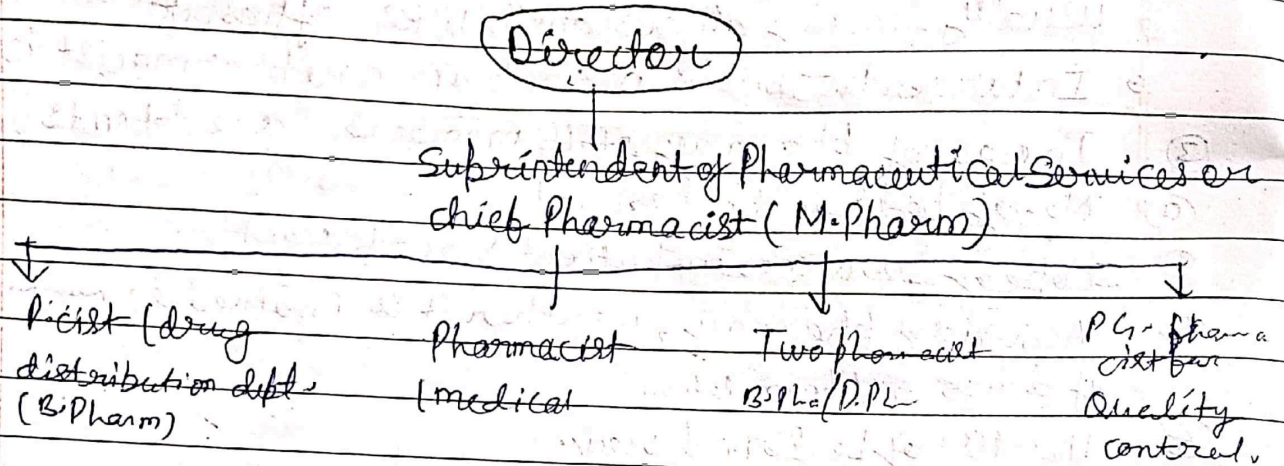 Director
Suprintendent of Pharmaceutical Services or
chief Pharmacist (M.Pharm)
P.cist (drug
distribution dept.
(B.Pharm)
Pharmacist
(medical
Two phomacist
B.Ph./D.Ph
PG. Phama
cist for
Quality
control.